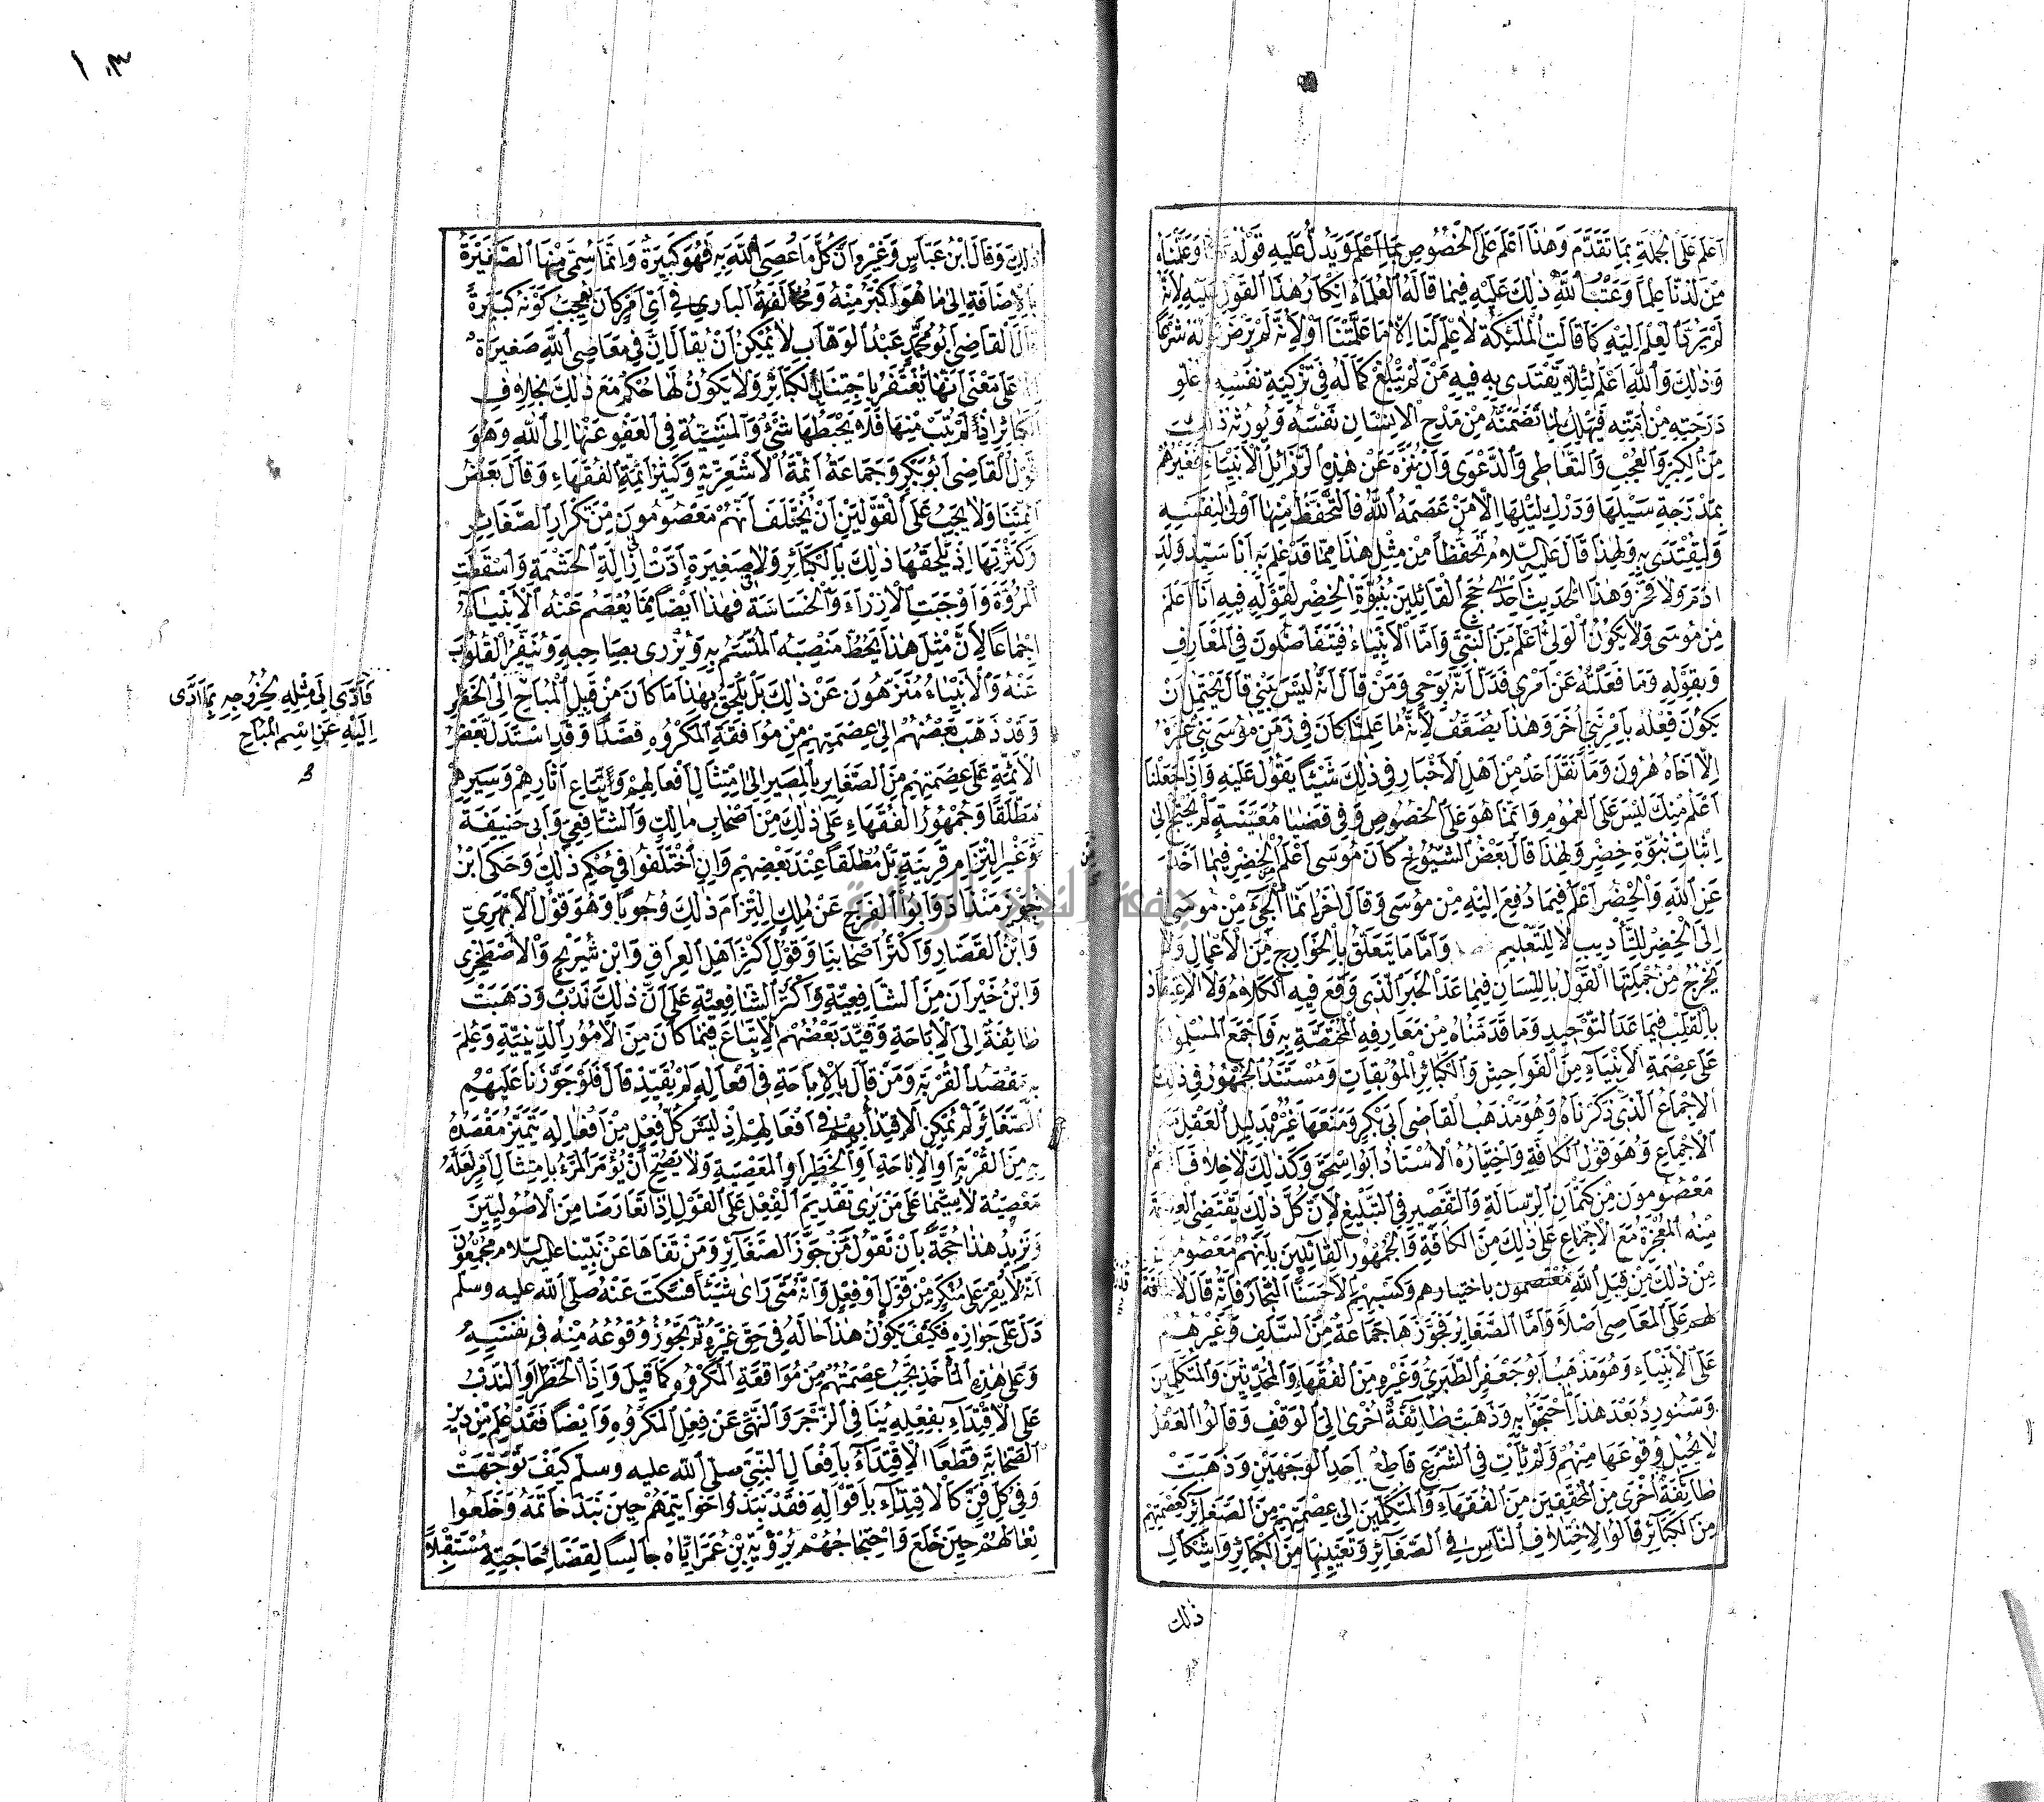 اَعْلَمُ عَلَى الجُمْلَةِ بِمَا تَقَدَّمَ وَهٰذَا اَعْلَمُ عَلَى الخُصُوصِ بِمَا اَعْلَمُ وَيَدُلُّ عَلَيْهِ قَوْلُهُ وَعَلَّمْنَاهُ
مِنْ لَدُنَّا عِلْمًا وَعَتْبُ اللّٰهِ ذٰلِكَ عَلَيْهِ فِيمَا قَالَهُ العُلَمَاءُ اِنْكَارُ هٰذَا القَوْلِ عَلَيْهِ لِاَنَّهُ
لَمْ يَرُدَّ العِلْمَ اِلَيْهِ كَمَا قَالَتِ المَلٰئِكَةُ لَا عِلْمَ لَنَا اِلَّا مَا عَلَّمْتَنَا اَوْ لِاَنَّهُ لَمْ يَرْضَ قَوْلَهُ شَرْعًا
وَذٰلِكَ وَاللّٰهُ اَعْلَمُ لِئَلَّا يَقْتَدِىَ بِهِ فِيهِ مَنْ لَمْ يَبْلُغْ كَمَالَهُ فِى تَزْكِيَةِ نَفْسِهِ وَعُلُوِّ
دَرَجَتِهِ مِنْ اُمَّتِهِ فَيَهْلِكَ لِمَا تَضَمَّنَهُ مِنْ مَدْحِ الاِنْسَانِ نَفْسَهُ وَيُورِثُهُ ذٰلِكَ
مِنَ الكِبْرِ وَالعُجْبِ وَالتَّعَاطِى وَالدَّعْوَى وَاِنْ نُزِّهَ عَنْ هٰذِهِ الرَّذَائِلِ الاَنْبِيَاءُ فَغَيْرُهُمْ
بِمَدْرَجَةِ سَبِيلِهَا وَدَرْكِ لَيْلِهَا اِلَّا مَنْ عَصَمَهُ اللّٰهُ فَالتَّحَفُّظُ مِنْهَا اَوْلٰى لِنَفْسِهِ
وَلِيُقْتَدَى بِهِ وَلِهٰذَا قَالَ عليه السّلام تَحَفُّظًا مِنْ مِثْلِ هٰذَا مِمَّا قَدْ عُلِمَ بِهِ اَنَا سَيِّدُ وَلَدِ
اٰدَمَ وَلَا فَخْرَ وَهٰذَا الحَدِيثُ اِحْدٰى حُجَجِ القَائِلِينَ بِنُبُوَّةِ الخَضِرِ لِقَوْلِهِ فِيهِ اَنَا اَعْلَمُ
مِنْ مُوسَى وَلَا يَكُونُ الوَلِىُّ اَعْلَمَ مِنَ النَّبِىِّ وَاَمَّا الاَنْبِيَاءُ فَيَتَفَاضَلُونَ فِى المَعَارِفِ
وَبِقَوْلِهِ وَمَا فَعَلْتُهُ عَنْ اَمْرِى فَدَلَّ اَنَّهُ بِوَحْىٍ وَمَنْ قَالَ اَنَّهُ لَيْسَ بِنَبِىٍّ قَالَ يَحْتَمِلُ اَنْ
يَكُونَ فِعْلُهُ بِاَمْرِ نَبِىٍّ اٰخَرَ وَهٰذَا يُضَعَّفُ لِاَنَّهُ مَا عَلِمْنَا كَانَ فِى زَمَنِ مُوسَى نَبِىٌّ غَيْرُهُ
اِلَّا اَخَاهُ هٰرُونَ وَمَا نَقَلَ اَحَدٌ مِنْ اَهْلِ الاَخْبَارِ فِى ذٰلِكَ شَيْئًا يُقُوْلُ عَلَيْهِ وَاِذَا جَعَلْنَا
اَعْلَمَ مِنْكَ لَيْسَ عَلَى العُمُومِ وَاِنَّمَا هُوَ عَلَى الخُصُوصِ وَفِى قَضَايَا مُعَيَّنَةٍ لَمْ يُحْتَجْ اِلٰى
اِثْبَاتِ نُبُوَّةِ خَضِرٍ وَلِهٰذَا قَالَ بَعْضُ الشُّيُوخِ كَانَ مُوسَى اَعْلَمَ مِنَ الخَضِرِ فِيمَا اَخَذَ
عَنِ اللّٰهِ وَالخَضِرُ اَعْلَمُ فِيمَا دُفِعَ اِلَيْهِ مِنْ مُوسَى وَقَالَ اٰخَرُ اِنَّمَا اُلْجِئَ مُوسَى
اِلَى الخَضِرِ لِلتَّأْدِيبِ لَا لِلتَّعْلِيمِ وَاَمَّا مَا يَتَعَلَّقُ بِالجَوَارِحِ مِنَ الاَعْمَالِ وَلَا
يَخْرُجُ مِنْ جُمْلَتِهَا القَوْلُ بِاللِّسَانِ فِيمَا عَدَا الخَبَرَ الَّذِى وَقَعَ فِيهِ الكَلَامُ وَلَا الاِعْتِقَادُ
بِالقَلْبِ فِيمَا عَدَا التَّوْحِيدِ وَمَا قَدَّمْنَاهُ مِنْ مَعَارِفِهِ المُخْتَصَّةِ بِهِ فَاَجْمَعَ المُسْلِمُونَ
عَلَى عِصْمَةِ الاَنْبِيَاءِ مِنَ الفَوَاحِشِ وَالكَبَائِرِ المُوبِقَاتِ وَمُسْتَنَدُ الجُمْهُورِ فِى ذٰلِكَ
الاِجْمَاعُ الَّذِى ذَكَرْنَاهُ وَهُوَ مَذْهَبُ القَاضِى اَبِى بَكْرٍ وَمَنَعَهَا غَيْرُهُ بِدَلِيلِ العَقْلِ
الاِجْمَاعِ وَهُوَ قَوْلُ الكَافَّةِ وَاخْتِيَارُهُ الاُسْتَاذُ اَبُو اِسْحٰقَ وَكَذٰلِكَ لَا خِلَافَ اَنَّهُمْ
مَعْصُومُونَ مِنْ كِتْمَانِ الرِّسَالَةِ وَالتَّقْصِيرِ فِى التَّبْلِيغِ لِاَنَّ كُلَّ ذٰلِكَ يَقْتَضِى العِصْمَةَ
مِنْهُ المُعْجِزَةُ مَعَ الاِجْمَاعِ عَلَى ذٰلِكَ مِنَ الكَافَّةِ وَالجُمْهُورِ القَائِلِينَ بِاَنَّهُمْ مَعْصُومُونَ
مِنْ ذٰلِكَ مِنْ قِبَلِ اللّٰهِ مُعْتَصِمُونَ بِاخْتِيَارِهِمْ وَكَسْبِهِمْ اِلَّا حُسَيْنًا النَّجَّارَ فَاِنَّهُ قَالَ لَا قُدْرَةَ
لَهُمْ عَلَى المَعَاصِى اَصْلًا وَاَمَّا الصَّغَائِرُ فَجَوَّزَهَا جَمَاعَةٌ مِنَ السَّلَفِ وَغَيْرُهُمْ
عَلَى الاَنْبِيَاءِ وَهُوَ مَذْهَبُ اَبُو جَعْفَرٍ الطَّبَرِىِّ وَغَيْرِهِ مِنَ الفُقَهَاءِ وَالمُحَدِّثِينَ وَالمُتَكَلِّمِينَ
وَسَنُورِدُ بَعْدَ هٰذَا مَا احْتَجُّوا بِهِ وَذَهَبَتْ طَائِفَةٌ اُخْرَى اِلَى الوَقْفِ وَقَالُوا العَقْلُ
لَا يُحِيلُ وُقُوعَهَا مِنْهُمْ وَلَمْ يَأْتِ فِى الشَّرْعِ قَاطِعٌ اَحَدِ الوَجْهَيْنِ وَذَهَبَتْ
طَائِفَةٌ اُخْرَى مِنَ المُحَقِّقِينَ مِنَ الفُقَهَاءِ وَالمُتَكَلِّمِينَ اِلَى عِصْمَتِهِمْ مِنَ الصَّغَائِرِ كَعِصْمَتِهِمْ
مِنَ الكَبَائِرِ قَالُوا لِاِخْتِلَافِ النَّاسِ فِى الصَّغَائِرِ وَتَعْيِينِهَا مِنَ الكَبَائِرِ وَاِشْكَالِ
ذلك
١٠٣
ذٰلِكَ وَقَالَ ابْنُ عَبَّاسٍ وَغَيْرِهِ اَنَّ كُلَّ مَا عُصِىَ اللّٰهُ بِهِ فَهُوَ كَبِيرَةٌ وَاِنَّمَا سُمِّىَ مِنْهَا الصَّغِيرَةُ
بِالاِضَافَةِ اِلٰى مَا هُوَ اَكْبَرُ مِنْهُ وَمُخَالَفَةُ البَارِى فِى اَىِّ اَمْرٍ كَانَ يَجِبُ كَوْنُهُ كَبِيرَةً
قَالَ القَاضِى اَبُو مُحَمَّدٍ عَبْدُ الوَهَّابِ لَا يُمْكِنُ اَنْ يُقَالَ اِنَّ فِى مَعَاصِى اللّٰهِ صَغِيرَةٌ
اِلَّا عَلَى مَعْنَى اَنَّهَا تُغْتَفَرُ بِاجْتِنَابِ الكَبَائِرِ وَلَا يَكُونُ لَهَا حُكْمٌ مَعَ ذٰلِكَ بِخِلَافِ
الكَبَائِرِ اِذَا لَمْ يُتَبْ مِنْهَا فَلَا يُحْبِطُهَا شَىْءٌ وَالمَشِيئَةُ فِى العَفْوِ عَنْهَا اِلَى اللّٰهِ وَهُوَ
قَوْلُ القَاضِى اَبُو بَكْرٍ وَجَمَاعَةُ اَئِمَّةِ الاَشْعَرِيَّةِ وَكَثِيرُ اَئِمَّةِ الفُقَهَاءِ وَقَالَ بَعْضُ
اَئِمَّتِنَا وَلَا يَجِبُ عَلَى القَوْلَيْنِ اَنْ يُخْتَلَفَ اَنَّهُمْ مَعْصُومُونَ مِنْ تَكْرَارِ الصَّغَائِرِ
وَكَثْرَتِهَا اِذْ يُلْحِقُهَا ذٰلِكَ بِالكَبَائِرِ وَلَا صَغِيرَةٍ اَدَّتْ اِلَى اِزَالَةِ الحِشْمَةِ وَاَسْقَطَتِ
المُرُوَّةَ وَاَوْجَبَتِ الاِزْرَاءَ وَالخَسَاسَةَ فَهٰذَا اَيْضًا مِمَّا يُعْصَمُ عَنْهُ الاَنْبِيَاءُ
اِجْمَاعًا لِاَنَّ مِثْلَ هٰذَا يَحُطُّ مَنْصِبَهُ المُتَّسِمُ بِهِ وَيُزْرِى بِصَاحِبِهِ وَيُنَفِّرُ القُلُوبَ
عَنْهُ وَالاَنْبِيَاءُ مُنَزَّهُونَ عَنْ ذٰلِكَ بَلْ يَلْحَقُ بِهٰذَا مَا كَانَ مِنْ قَبِيلِ المُبَاحِ اِلَى الخَطَرِ
فَاَدَّى اِلَى مِثْلِهِ لِخُرُوجِهِ بِمَا اَدَّى
اِلَيْهِ عَنِ اسْمِ المُبَاحِ
وَقَدْ ذَهَبَ بَعْضُهُمْ اِلٰى عِصْمَتِهِمْ مِنْ مُوَاقَعَةِ المَكْرُوهِ قَصْدًا وَقَدِ اسْتَدَلَّ بَعْضُ
الاَئِمَّةِ عَلَى عِصْمَتِهِمْ مِنَ الصَّغَايِرِ بِالمَصِيرِ اِلَى امْتِثَالِ اَفْعَالِهِمْ وَاتِّبَاعِ اٰثَارِهِمْ وَسِيَرِهِمْ
مُطْلَقًا وَجُمْهُورُ الفُقَهَاءِ عَلَى ذٰلِكَ مِنْ اَصْحَابِ مَالِكٍ وَالشَّافِعِىِّ وَاَبِى حَنِيفَةَ
مِنْ غَيْرِ التِزَامِ قَرِينَةٍ بَلْ مُطْلَقًا عِنْدَ بَعْضِهِمْ وَاِنِ اخْتَلَفُوا فِى حُكْمِ ذٰلِكَ وَحَكَى ابْنُ
خُوَيْزِ مَنْدَاذٍ وَاَبُو الفَرَجِ عَنْ مٰلِكٍ اِلْتِزَامَ ذٰلِكَ وُجُوبًا وَهُوَ قَوْلُ الاَبْهَرِىِّ
وَابْنِ القَصَّارِ وَاَكْثَرُ اَصْحَابِنَا وَقَوْلُ اَكْثَرِ اَهْلِ العِرَاقِ وَابْنِ سُرَيْجٍ وَالاِصْطَخْرِىِّ
وَابْنُ خَيْرَانَ مِنَ الشَّافِعِيَّةِ وَاَكْثَرُ الشَّافِعِيَّةِ عَلَى اَنَّ ذٰلِكَ نَدْبٌ وَذَهَبَتْ
طَائِفَةٌ اِلَى الاِبَاحَةِ وَقَيَّدَ بَعْضُهُمْ الاِتِّبَاعَ فِيمَا كَانَ مِنَ الاُمُورِ الدِّينِيَّةِ وَعُلِمَ
بِهِ مَقْصَدُ القُرْبَةِ وَمَنْ قَالَ بِالاِبَاحَةِ فِى اَفْعَالِهِ لَمْ يُقَيِّدْ قَالَ فَلَوْ جَوَّزْنَا عَلَيْهِمُ
الصَّغَائِرَ لَمْ يُمْكِنِ الاِقْتِدَاءُ بِهِمْ فِى اَفْعَالِهِمْ اِذْ لَيْسَ كُلُّ فِعْلٍ مِنْ اَفْعَالِهِ يَتَمَيَّزُ مَقْصَدُهُ
بِهِ مِنَ القُرْبَةِ اَوِ الاِبَاحَةِ اَوِ الحَظْرِ اَوِ المَعْصِيَةِ وَلَا يَصِحُّ اَنْ يُؤْمَرَ المَرْءُ بِامْتِثَالِ اَمْرٍ لَعَلَّهُ
مَعْصِيَةٌ لَا سِيَّمَا عَلَى مَنْ يَرَى تَقْدِيمَ الفِعْلِ عَلَى القَوْلِ اِذَا تَعَارَضَا مِنَ الاُصُولِيِّينَ
وَنَزِيدُ هٰذَا حُجَّةً بِاَنْ نَقُولَ مَنْ جَوَّزَ الصَّغَائِرَ وَمَنْ نَفَاهَا عَنْ نَبِيِّنَا عليه السّلام مُجْمِعُونَ
اَنَّهُ لَا يُقِرُّ عَلَى مُنْكَرٍ مِنْ قَوْلٍ اَوْ فِعْلٍ وَاَنَّهُ مَتَى رَاٰى شَيْئًا فَسَكَتَ عَنْهُ صلى الله عليه وسلم
دَلَّ عَلَى جَوَازِهِ فَكَيْفَ يَكُونُ هٰذَا حَالَهُ فِى حَقِّ غَيْرِهِ ثُمَّ يُجَوَّزُ وُقُوعُهُ مِنْهُ فِى نَفْسِهِ
وَعَلَى هٰذِهِ المَأْخَذِ يَجِبُ عِصْمَتُهُمْ مِنْ مُوَاقَعَةِ المَكْرُوهِ كَمَا قِيلَ وَاِذَا الحَظْرُ اَوِ النَّدْبُ
عَلَى الاِقْتِدَاءِ بِفِعْلِهِ يُنَافِى الزَّجْرَ وَالنَّهْىَ عَنْ فِعْلِ المَكْرُوهِ وَاَيْضًا فَقَدْ عُلِمَ مِنْ دِينِ
الصَّحَابَةِ قَطْعًا الاِقْتِدَاءُ بِاَفْعَالِ النَّبِىِّ صلى الله عليه وسلم كَيْفَ تَوَجَّهَتْ
وَفِى كُلِّ فَنٍّ كَالاِقْتِدَاءِ بِاَقْوَالِهِ فَقَدْ نَبَذُوا خَوَاتِيمَهُمْ حِينَ نَبَذَ خَاتَمَهُ وَخَلَعُوا
نِعَالَهُمْ حِينَ خَلَعَ وَاحْتِجَاجُهُمْ بِرُؤْيَةِ بْنِ عُمَرَ اِيَّاهُ جَالِسًا لِقَضَاءِ حَاجَتِهِ مُسْتَقْبِلًا
جامعة النجاح الوطنية